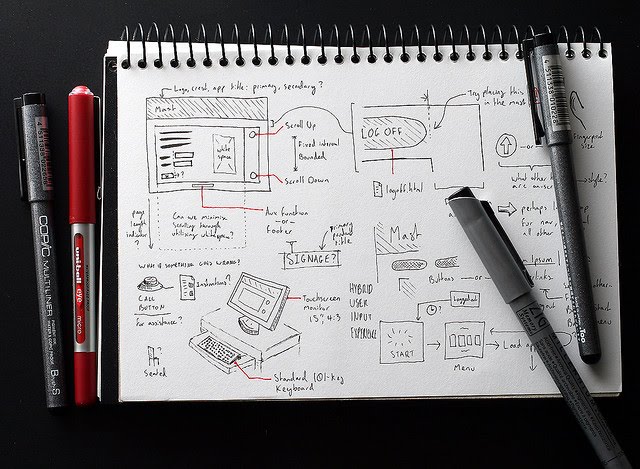 Logo, crest, app title: primary, secondary?
Mast
Scroll Up
Fixed internal
Bounded
white
space
Scroll Down
Aux Function
-or-
Footer
Can we minimise
scrolling through
utilising whitespace?
page
length
indicator
?
LOG OFF
Try placing this
in the mast
logoff.html
fingerprint
size
-or
What other
style?
are
perhaps
for nav,
all other
primary
product
title
SIGNAGE?
Mast
Buttons -or-
Ipsum
WHAT IF SOMETHING GOES WRONG?
CALL
BUTTON
Instructions?
For assistance?
Seated
Touchscreen
monitor
15" 4:3
Standard 101-key
Keyboard
HYBRID
USER
INPUT
EXPERIENCE
Logged out
START
Menu
Load
COPIC MULTILINER
B S
uni-ball
eye
micro
Too